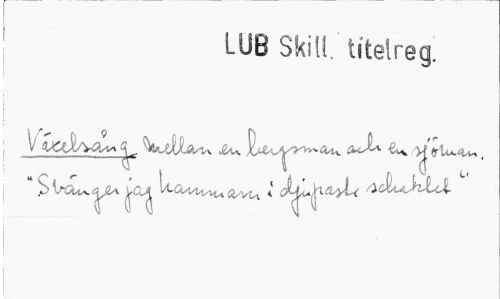 LUB Skill. titelreg.
Växelsång mellan en bergsman och en sjöman.
"Svänger jag hammarn i djupaste schaktet"